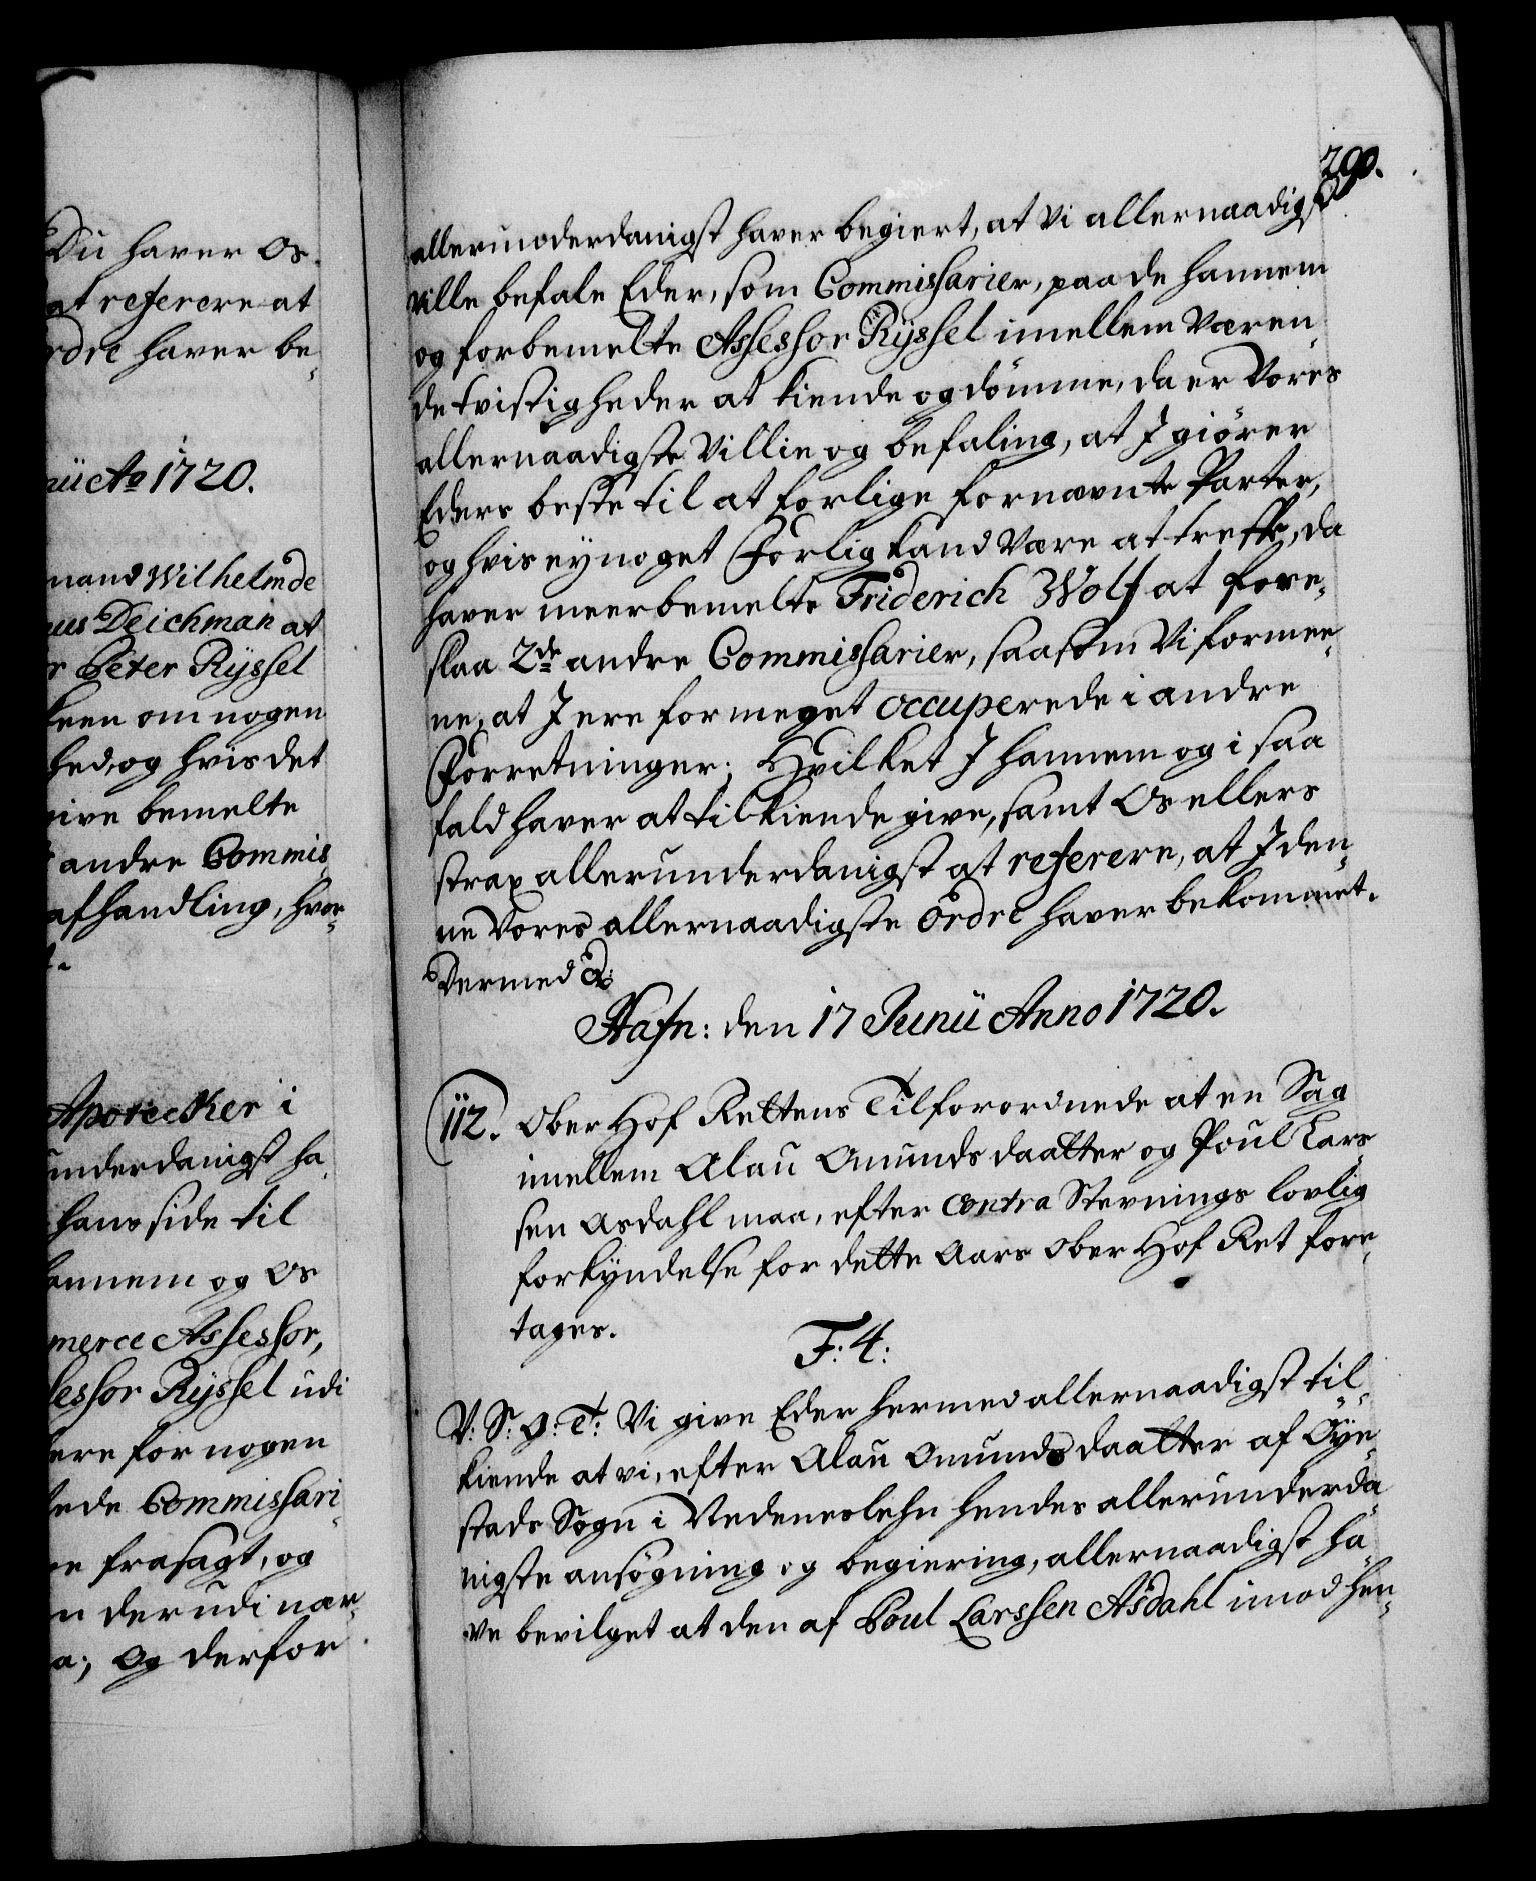 Du haver os
at referere at
rdre haver be-
nii Ao 1720.
mand Wilhelm de
us Deichman at
r Peter Ryssel
keen om nogen
hed, og hvis det
give bemelte
andre Commis-
afhandling, hvor-
t.
Apotecker i
underdanigst ha-
hans side til
hannem og os
merce Assessor,
sessor Ryssel udi
være for nogen
lede Commissari-
ne frasagt, og
n derudi nær-
a; og derfor
290.
allerunderdanigst haver begiert, at Vi allernaadigst
ville befale Eder, som Commissarier, paa de hannem
og forbemelte Assessor Ryssel imellem Væren-
de tvistigheder at kiende og dømme, da er Vores
allernaadigste Villie og befaling, at I giører
Eders beste til at forlige fornævnte Parter,
og hvis ey noget Forlig kand Være at treffe, da
haver meerbemelte Friderich Wolf at fore-
slaa 2de andre Commissarier, saasom Vi formee-
ne, at I ere for meget occuperede i andre
Forretninger; Hvilket I hannem og i saa
fald haver at tilkiende give, samt Os ellers
strax allerunderdanigst at referere, at I den-
ne Vores allernaadigste Ordre haver bekommet.
Dermed &:
Hafn: den 17 Junii Anno 1720.
112. Ober Hof Rettens Tilforordnede at en Sag
imellem Alau Omunds daatter og Poul Lars-
sen Asdahl maa, efter contra Stevnings lovlig
forkyndelse for dette Aars Ober Hof Ret fore-
tages.
F: 4:
V: S: G: T: Vi give Eder hermed allernaadigst til-
kiende at vi, efter Alau Omunds daatter af Øye-
stads Sogn i Nedeneslehn hendes allerunderda-
nigste ansøgning og begiering, allernaadigst ha-
ve bevilget at den af Poul Larssen Asdahl imod hen-